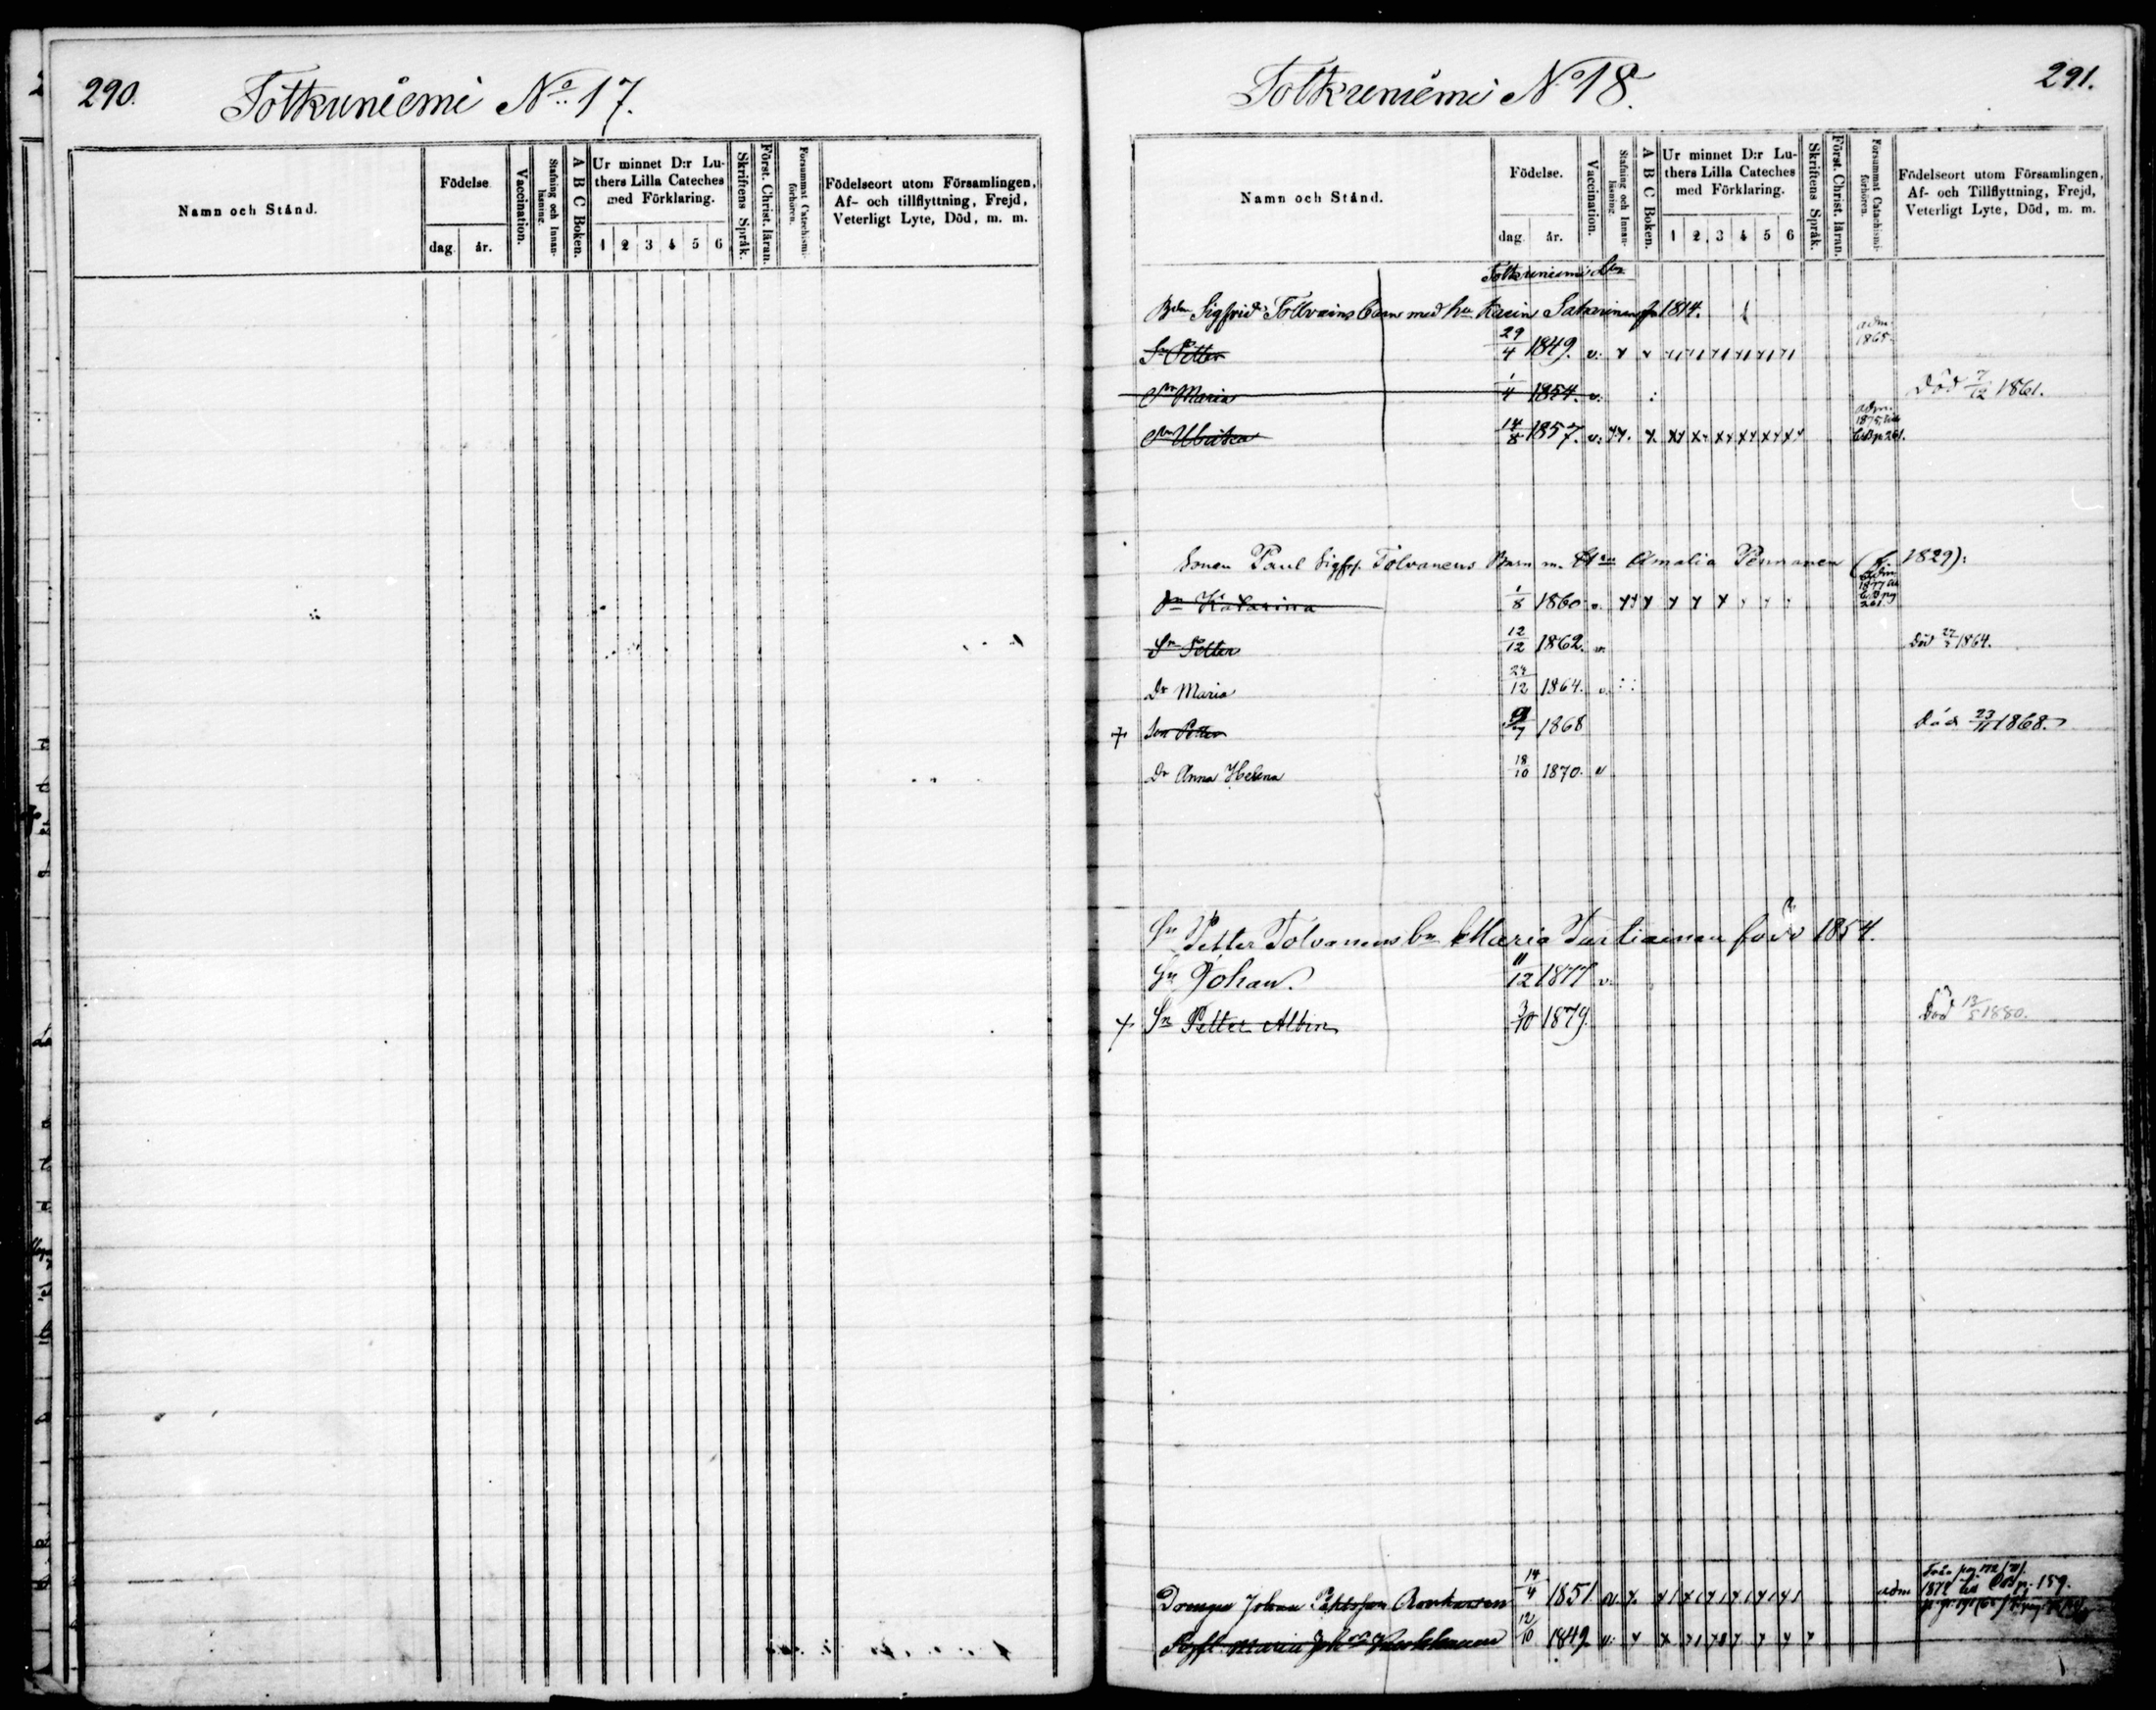 290.
Totkuniemi No. 17.
Namn och Stånd.
Födelse
dag.
år.
Vaccination.
Stafning och Innan-
läsning.
A B C Boken.
Ur minnet D:r Lu-
thers Lilla Cateches
med Förklaring.
1 2 3 4 5 6
Skriftens Språk.
Först. Christ. läran.
Försummat Catechismi-
förhören.
Födelseort utom Församlingen,
Af- och tillflyttning, Frejd,
Veterligt Lyte, Död, m. m.
291.
Totkuniemi No 18.
Namn och Stånd.
Födelse.
dag.
år.
Vaccination.
Stafning och Innan-
läsning.
A B C Boken.
Ur minnet D:r Lu-
thers Lilla Cateches
med Förklaring.
1 2 3 4 5 6
Skriftens Språk.
Först. Christ. läran.
Försummat Catechismi-
förhören.
Födelseort utom Församlingen,
Af- och Tillflyttning, Frejd,
Veterligt Lyte, Död, m. m.
Totkuniemi
Sigfrid Tolvains Barn med Karin 1814.
Sn Petter 29/4 1849. v. adm. 1865
Maria 1/4 1854. v. Död 7/12 1861.
Ulrika 14/8 1857. v. adm. 1875 p 261.
Sonen Paul Sigfr. Tolvanens Barn m. Hu Amalia Pennanen (f. 1829):
Katarina 1/8 1860 v. adm. 1877 261
Sn Petter 12/12 1862. v. Död 1864.
Dr Maria 24/12 1864. v.
+ Son Petter 9/7 1868 Död 23/11 1868.
Dr Anna Helena 18/10 1870. v
Sn Petter Tolvanens bn Maria Turtiainen född 1854.
Sn Johan. 11/12 1877 v.
+ Sn Petter Albin 3/10 1879. Död 13/5 1880.
Drengen Johan 14/4 1851. v. adm 1872 159.
Maria 12/10 1849. v.